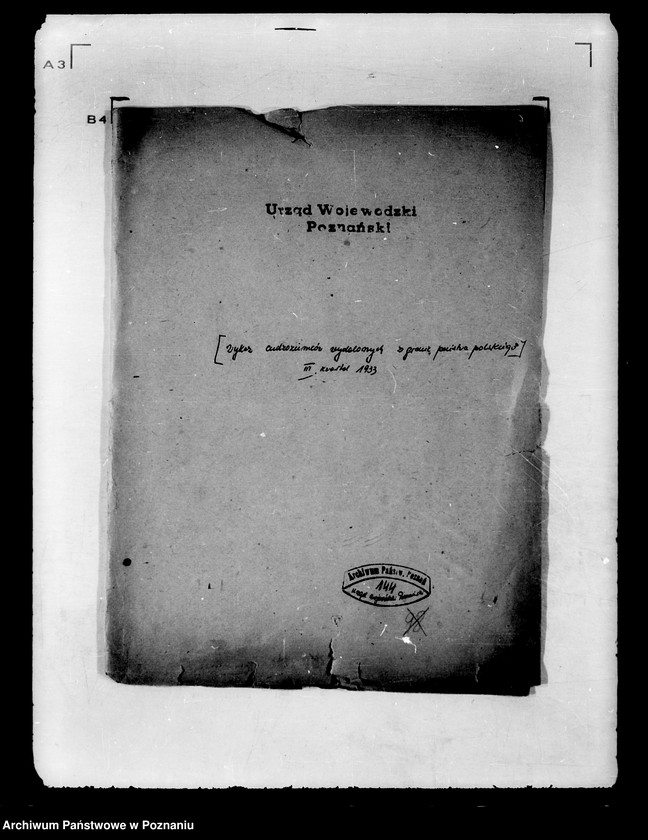 A3
B4
Urząd Wojewódzki
Poznański
[Wykaz cudzoziemców wydalonych z granic państwa polskiego]
III. kwartał 1933
Archiwum Państw. Poznań
144
Urząd Wojewódzki Poznański
98
Archiwum Państwowe w Poznaniu